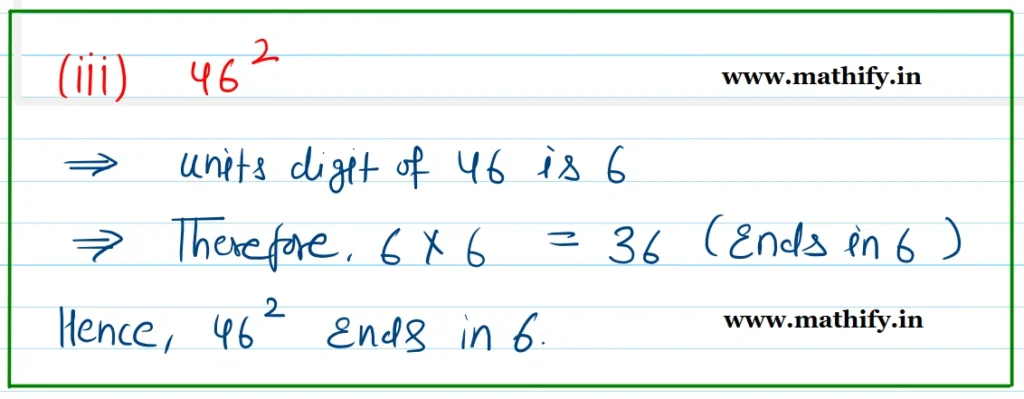 (iii) 46²
www.mathify.in
⇒ units digit of 46 is 6
⇒ Therefore, 6 × 6 = 36 (Ends in 6)
Hence, 46² Ends in 6.
www.mathify.in